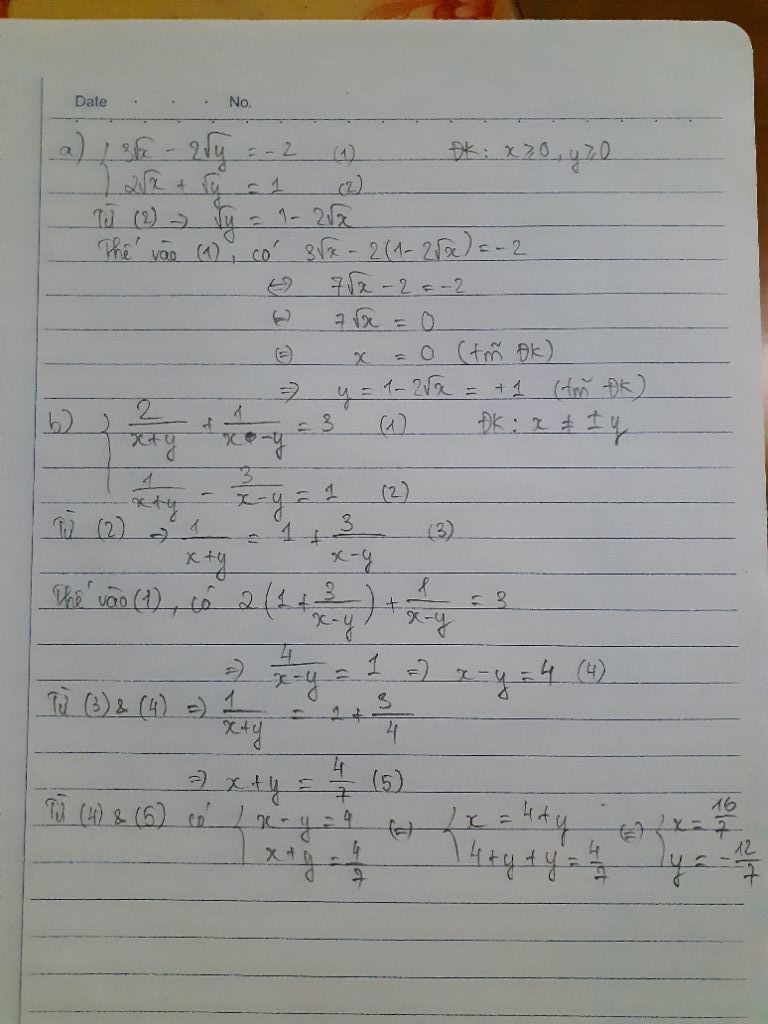 Date . . . No.
a) { 3√x - 2√y = -2 (1) ĐK: x ≥ 0, y ≥ 0
2√x + √y = 1 (2)
Từ (2) → √y = 1 - 2√x
Thế vào (1), có 3√x - 2(1 - 2√x) = -2
⇔ 7√x - 2 = -2
⇔ 7√x = 0
⇔ x = 0 (tmĩ ĐK)
⇒ y = 1 - 2√x = +1 (tmĩ ĐK)
b) { 2/(x+y) + 1/(x-y) = 3 (1) ĐK: x ≠ ±y
1/(x+y) - 3/(x-y) = 1 (2)
Từ (2) ⇒ 1/(x+y) = 1 + 3/(x-y) (3)
Thế vào (1), có 2(1 + 3/(x-y)) + 1/(x-y) = 3
⇒ 4/(x-y) = 1 ⇒ x - y = 4 (4)
Từ (3) & (4) ⇒ 1/(x+y) = 1 + 3/4
⇒ x + y = 4/7 (5)
Từ (4) & (5) có { x - y = 4 ⇔ { x = 4 + y ⇔ { x = 16/7
x + y = 4/7 4 + y + y = 4/7 y = -12/7